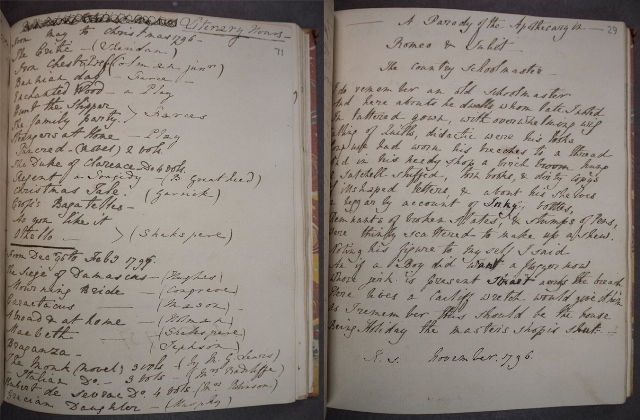 Literary Hours
71
From May to Christmas 1796 -
The Critic - (Sheridan)
Iron Chest (Colman junr)
Bannian day - Farce -
Enchanted Wood - a Play
Hunt the Slipper
The family party } Farces
Abroad at Home - Play
(novel) 2 vols.
The Duke of Clarence Do 4 vols.
Regent a Tragedy (B. Greatheed)
Christmas Tale. (Garrick)
Grose's
As you like it
Othello - } (Shakspere)
From Decr 25th to Feb 3 1796.
The Siege of Damascus - (Hughes)
Mourning Bride - (Congreve)
Caractacus - (Mason)
Abroad & at home - (Holman)
Macbeth - (Shakspeare)
Braganza - (Jephson)
The Monk (novel) 3 vols - (by M. G. Lewis)
Italian Do. - 3 vols - (Mrs Radcliffe)
Hubert de Sevrac Do 4 vols. (Mrs Robinson)
Grecian Daughter - (Murphy)
A Parody of the Apothecary in
29
Romeo & Juliet -
The Country Schoolmaster -
I do remember an old Schoolmaster
And here abouts he dwells, whom late I noted
In tattered gown, with overwhelming wig
didactic were his looks
had worn his breeches to a thread
And in his needy shop a birch broom hung
A Satchell stuffed, horn books, & dirty
Of ill shaped letters, & about his shelves
A beggarly account of Inky bottles,
Remnants of broken Slates, & Stumps of Pens,
Were thinly scattered to make up a shew.
Noting his figure to myself I said
An if a Boy did want a now
Whose is present
Here lives a caitiff wretch would give it him
As I remember this should be the house
Being Holiday the master's shop is shut -
November. 1796